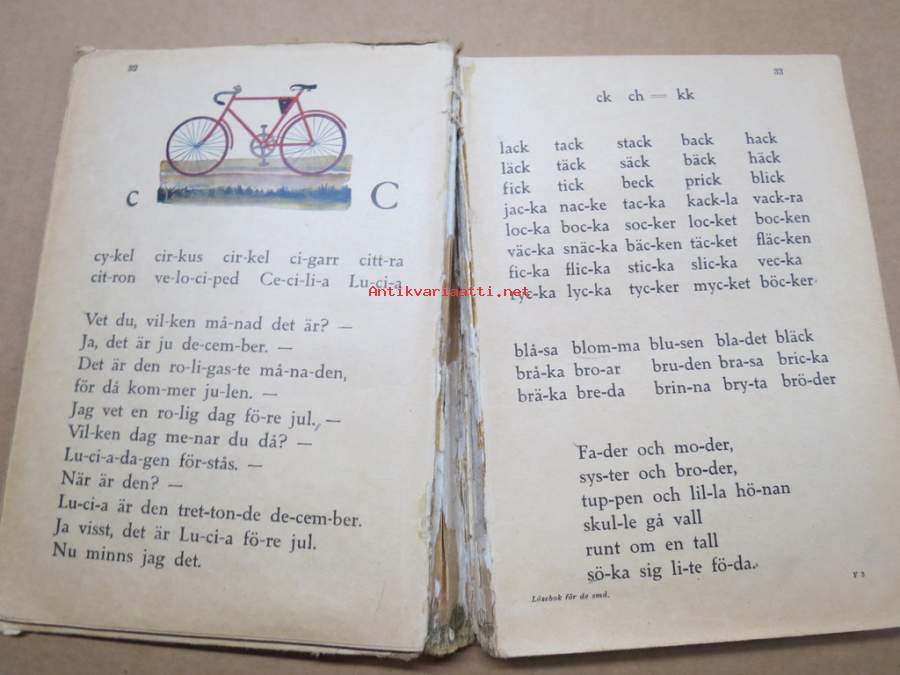 32
c C
cy-kel cir-kus cir-kel ci-garr citt-ra
cit-ron ve-lo-ci-ped Ce-ci-li-a Lu-ci-a
Vet du, vil-ken må-nad det är? —
Ja, det är ju de-cem-ber. —
Det är den ro-li-gas-te må-na-den,
för då kom-mer ju-len. —
Jag vet en ro-lig dag fö-re jul. —
Vil-ken dag me-nar du då? —
Lu-ci-a-da-gen för-stås. —
När är den? —
Lu-ci-a är den tret-ton-de de-cem-ber.
Ja visst, det är Lu-ci-a fö-re jul.
Nu minns jag det.
33
ck ch = kk
lack tack stack back hack
läck täck säck bäck häck
fick tick beck prick blick
jac-ka nac-ke tac-ka kack-la vack-ra
loc-ka boc-ka soc-ker loc-ket boc-ken
väc-ka snäc-ka bäc-ken täc-ket fläc-ken
fic-ka flic-ka stic-ka slic-ka vec-ka
ryc-ka lyc-ka tyc-ker myc-ket böc-ker
blå-sa blom-ma blu-sen bla-det bläck
brå-ka bro-ar bru-den bra-sa bric-ka
brä-ka bre-da brin-na bry-ta brö-der
Fa-der och mo-der,
sys-ter och bro-der,
tup-pen och lil-la hö-nan
skul-le gå vall
runt om en tall
sö-ka sig li-te fö-da.
Läsebok för de små.
F 3
Antikvariaatti.net